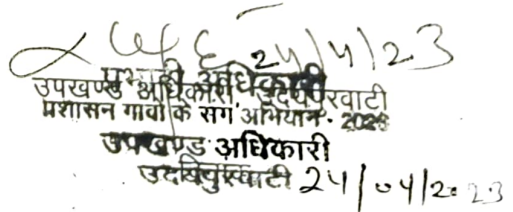 24/4/23
प्रभारी अधिकारी
उपखण्ड अधिकारी उदयपुरवाटी
प्रशासन गावों के संग अभियान - 2023
उपखण्ड अधिकारी
उदयपुरवाटी 24/04/2023